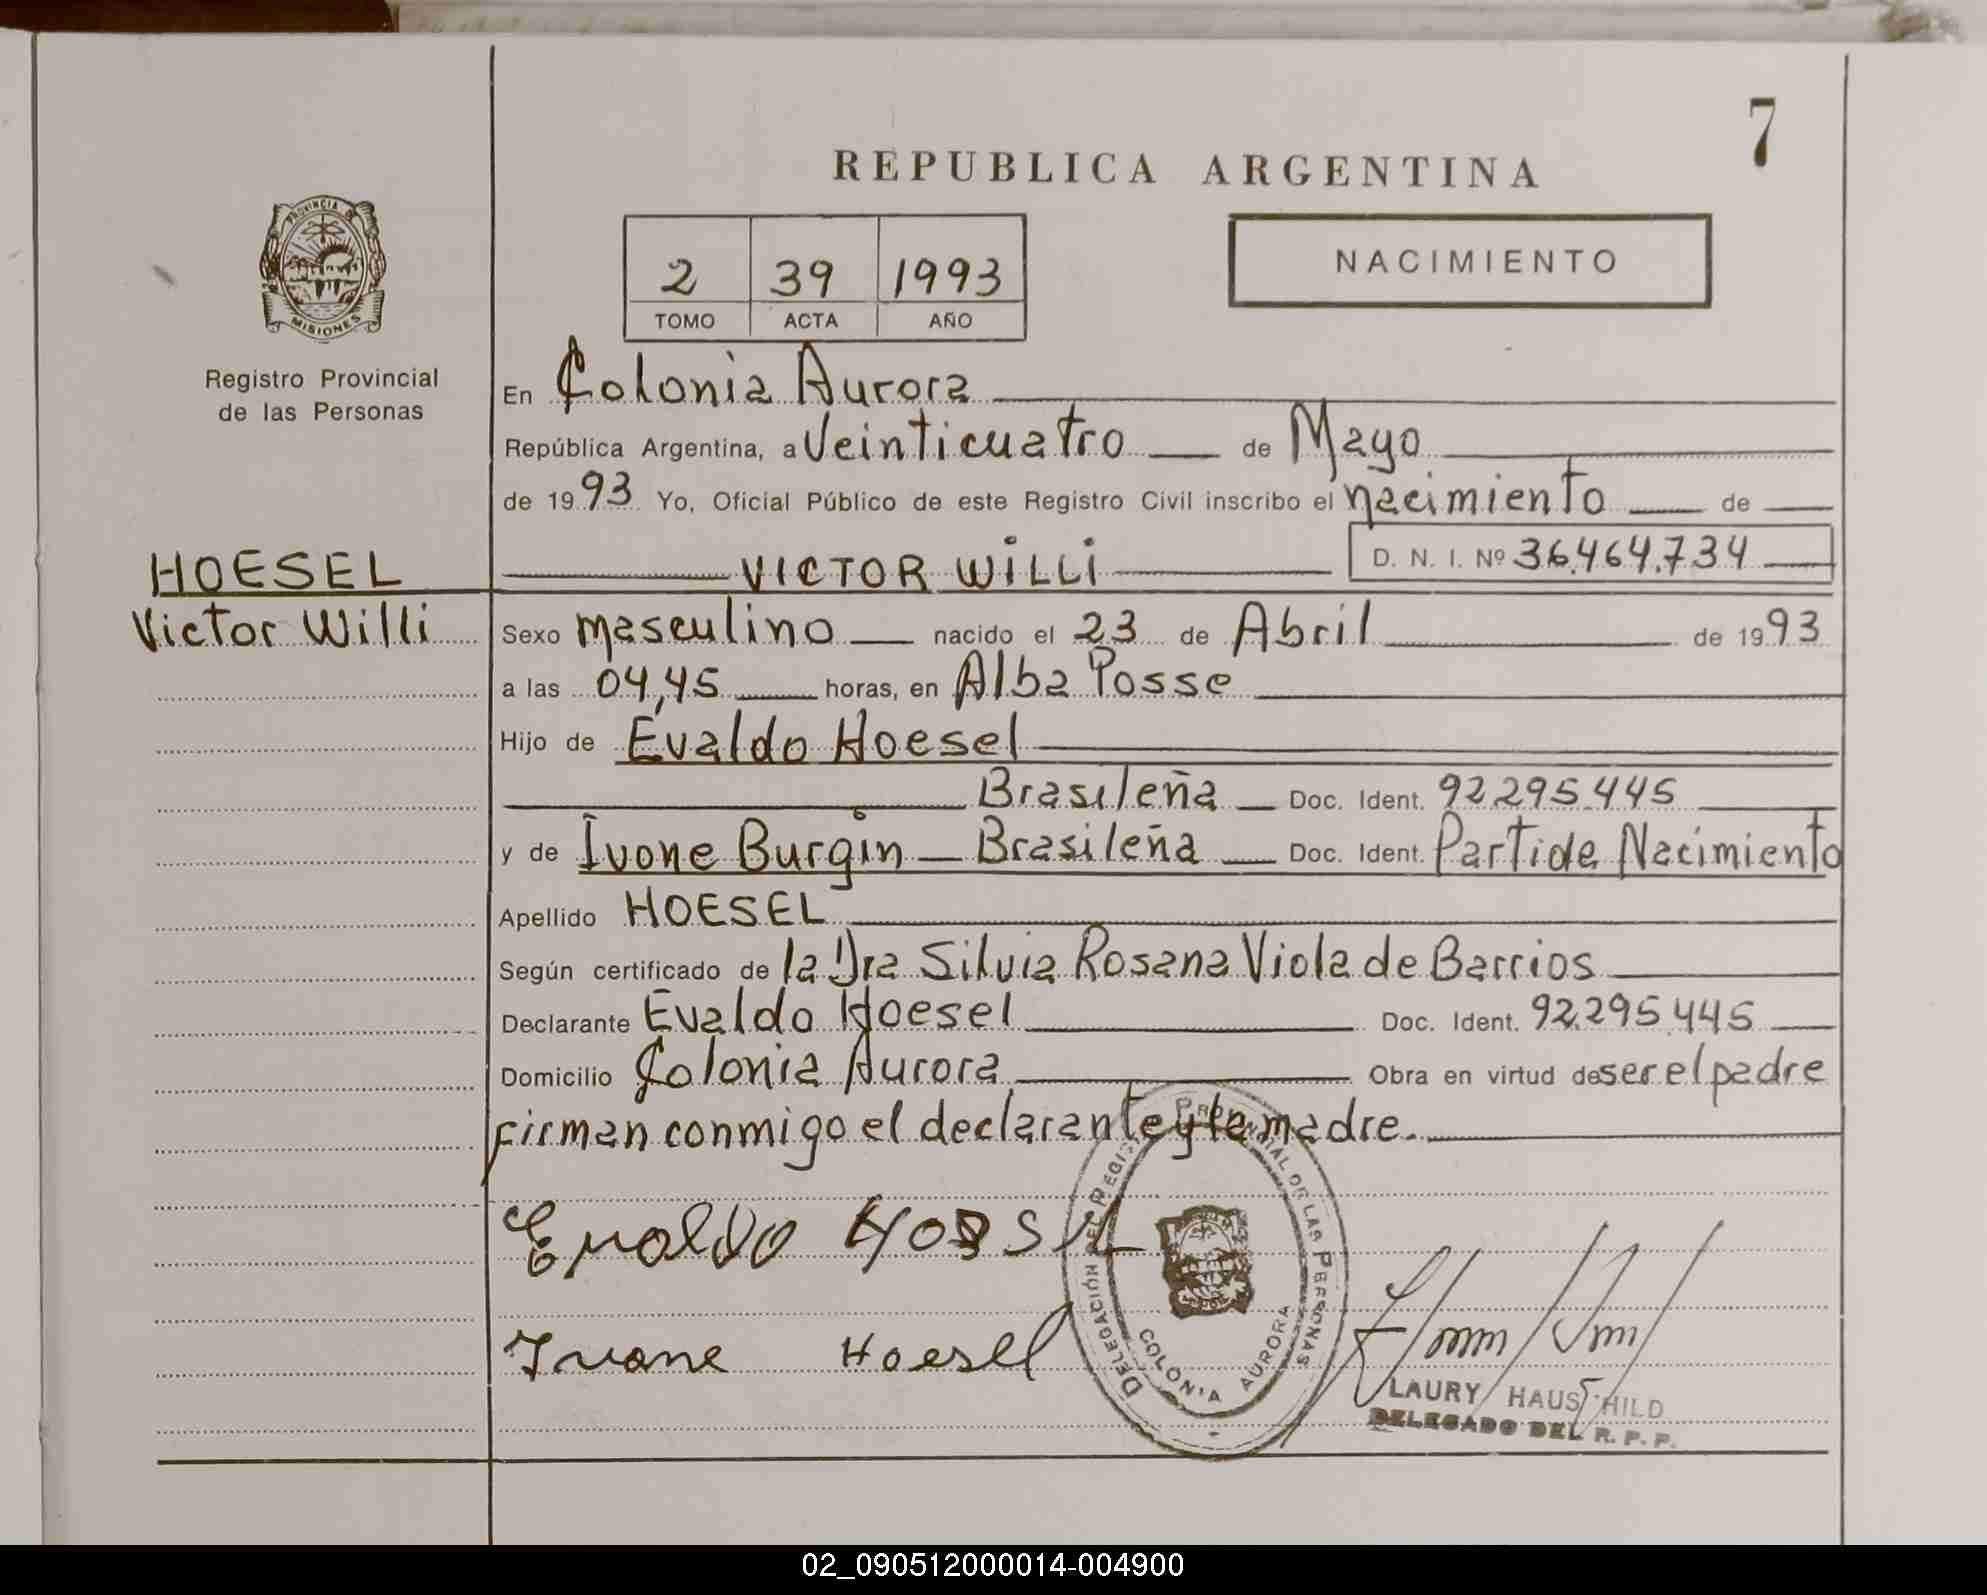 7
REPUBLICA ARGENTINA
PROVINCIA DE
MISIONES
Registro Provincial
de las Personas
2 39 1993
TOMO ACTA AÑO
NACIMIENTO
En Colonia Aurora
República Argentina, a Veinticuatro de Mayo
de 1993 Yo, Oficial Público de este Registro Civil inscribo el nacimiento de
HOESEL
VICTOR WILLI D. N. I. Nº 36.464.734
Victor Willi
Sexo masculino nacido el 23 de Abril de 1993
a las 04,45 horas, en Alba Posse
Hijo de Evaldo Hoesel
Brasileña Doc. Ident. 92.295.445
y de Ivone Burgin Brasileña Doc. Ident. Partida Nacimiento
Apellido HOESEL
Según certificado de la Dra Silvia Rosana Viola de Barrios
Declarante Evaldo Hoesel Doc. Ident. 92.295.445
Domicilio Colonia Aurora Obra en virtud de ser el padre
firman conmigo el declarante y la madre.
Evaldo Hoesel
Ivone Hoesel
DELEGACIÓN DEL REGISTRO PROVINCIAL DE LAS PERSONAS
COLONIA AURORA
LAURY HAUSCHILD
DELEGADO DEL R. P. P.
02_090512000014-004900